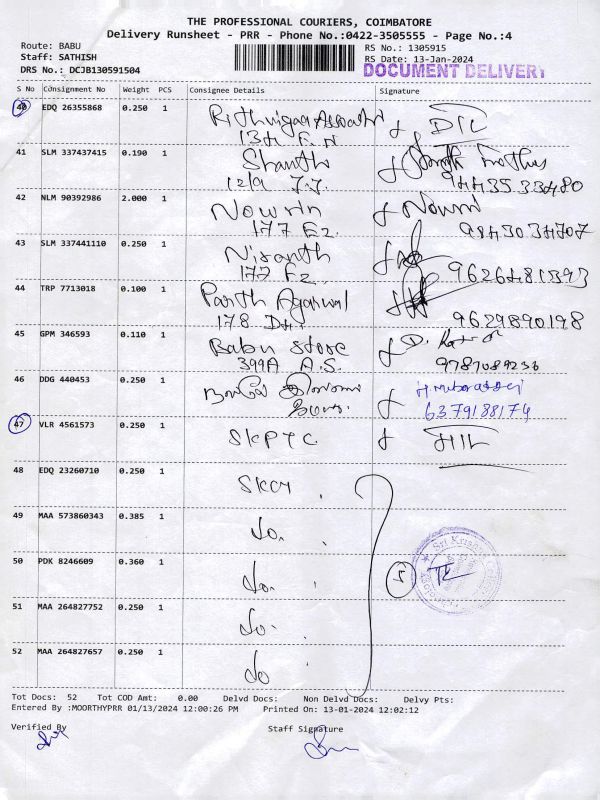 THE PROFESSIONAL COURIERS, COIMBATORE
Delivery Runsheet - PRR - Phone No.:0422-3505555 - Page No.:4
Route: BABU
Staff: SATHISH
DRS No.: DCJB130591504
RS No.: 1305915
RS Date: 13-Jan-2024
DOCUMENT DELIVERY
S No Consignment No Weight PCS Consignee Details Signature
40 EDQ 26355868 0.250 1
41 SLM 337437415 0.190 1 Shanth
9443533480
42 NLM 90392986 2.000 1 Nowrin
177 Ez. 9843034707
43 SLM 337441110 0.250 1 Nisanth
177 Ez. 9626481393
44 TRP 7713018 0.100 1 Parth Agarwal
178 9629890198
45 GPM 346593 0.110 1 Babu Store
399A A.S. 9787089236
46 DDG 440453 0.250 1
6379188174
47 VLR 4561573 0.250 1 SKPTC
48 EDQ 23260710 0.250 1 SKCT
49 MAA 573860343 0.385 1 do.
50 PDK 8246609 0.360 1 do.
5
Sri Krishna
51 MAA 264827752 0.250 1 do.
52 MAA 264827657 0.250 1 do
Tot Docs: 52 Tot COD Amt: 0.00 Delvd Docs: Non Delvd Docs: Delvy Pts:
Entered By :MOORTHYPRR 01/13/2024 12:00:26 PM Printed On: 13-01-2024 12:02:12
Verified By Staff Signature